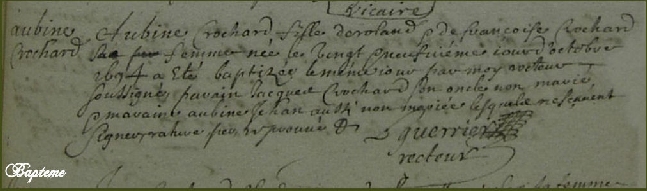 Vicaire
aubine Aubine Crochard fille de roland & de francoise Crochard
Crochard sa femme née le vingt neufuiéme iour d'octobre
1694 a eté baptizée le méme iour par moy recteur
soussigné parain Jacques Crochard son oncle non marié
& maraine aubine Jehan aussi non mariée lesquels ne sçauent
signer rature 
guerrier
recteur
Bapteme